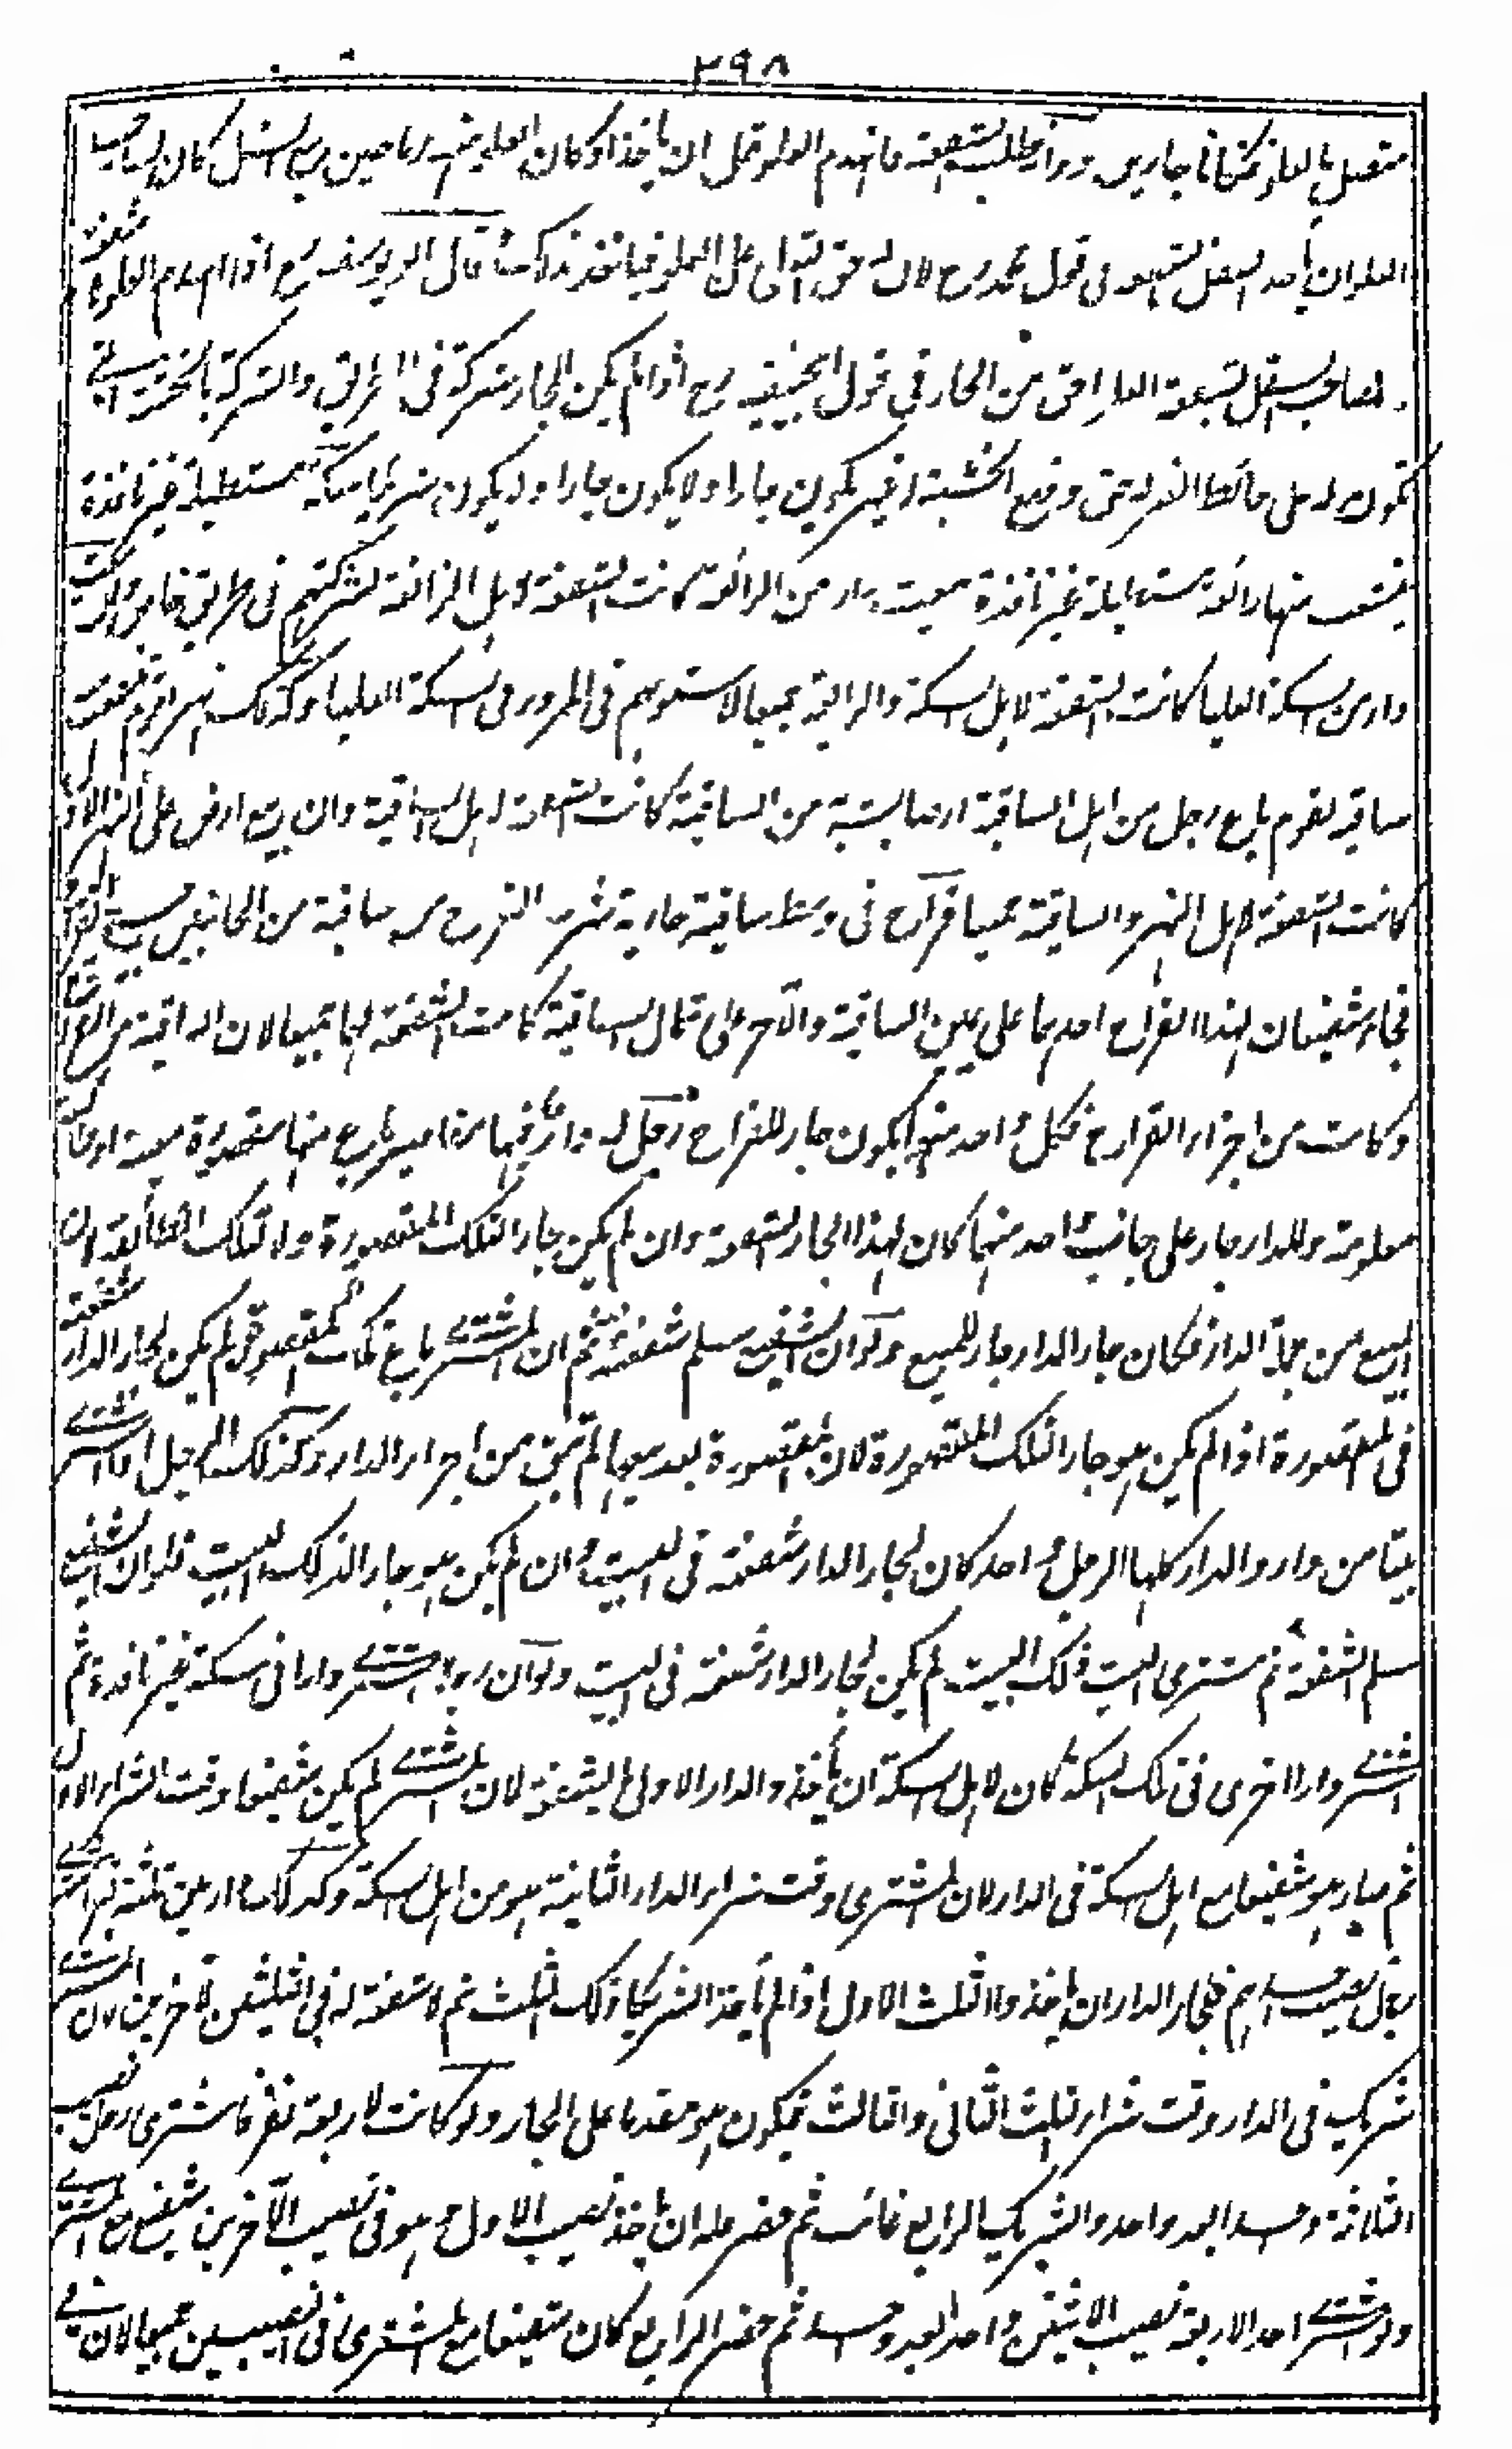 ٢٩٨
متصل بالعلو فكانا جارين ولو طلب الشفعة فانهدم العلو قبل ان ياخذ او كان العلو منهدما حين بيع السفل كان لصاحب
العلو ان ياخذ السفل بالشفعة في قول محمد رح لان له حق التعلي على السفل فياخذ بذلك قال ابو يوسف رح اذا انهدم العلو فلا شفعة
لصاحب السفل شفعة العلو احق من الجار في قول ابي حنيفة رح اذا لم يكن للجار شركة في الطريق والشركة بالخشبة التي
تكون له على حائط الغير له حق وضع الخشبة لا غير يكون جارا ولا يكون شريكا سكة مستطيلة غير نافذة
ينشعب منها زائغة مستطيلة غير نافذة بيعت دار من الزائغة كانت الشفعة لاهل الزائغة لشركتهم في طريق خاص وان بيعت
دار من السكة العليا كانت الشفعة لاهل السكة والزائغة جميعا لاستوائهم في المرور في السكة العليا وكذلك نهر لقوم تنشعب منه
ساقية لقوم باع رجل من اهل الساقية ارضا بشربه من الساقية كانت الشفعة لاهل الساقية وان بيع ارض على النهر الاول
كانت الشفعة لاهل النهر والساقية جميعا قراح في وسط ساقية جارية شرب القراح من ساقية من الجانبين بيع القراح
فجاء شفيعان لهذا القراح احدهما على يمين الساقية والآخر على شمال الساقية كانت الشفعة لهما جميعا لان الساقية من القراح
وكانت من اجزاء القراح فكل واحد منهما يكون جار للقراح رجل له دار فيها مقاصير باع منها مقصورة معينة او طائفة
معلومة وللدار جار على جانب واحد منها كان لهذا الجار الشفعة وان لم يكن جار التلك المقصورة ولا لتلك الطائفة لان
المبيع من جملة الدار فكان جار الدار جار للمبيع ولو ان الشفيع سلم شفعته ثم ان المشتري باع تلك المقصورة لم يكن لجار الدار شفعة
في المقصورة اذا لم يكن هو جار التلك المقصورة لان المقصورة بعد بيعها لم تبق من اجزاء الدار وكذلك الرجل اذا اشترى
بيتا من دار والدار كلها لرجل واحد كان لجار الدار شفعة في البيت وان لم يكن هو جار الذلك البيت فلو ان الشفيع
سلم الشفعة ثم مشتري البيت باع ذلك البيت لم يكن لجار الدار شفعة في البيت ولو ان رجلا اشترى دارا في سكة غير نافذة ثم
اشترى دارا اخرى في تلك السكة كان لاهل السكة ان ياخذوا الدار الاولى بالشفعة لان المشتري لم يكن شفيعا وقت الشراء الاول
ثم صار هو شفيعا مع اهل السكة في الدار لان المشتري وقت شراء الدار الثانية هو من اهل السكة وكذلك دار بين ثلثة نفر اشترى
رجل نصيب احدهم فلجار الدار ان ياخذ ولا الثلث الاول اذا لم ياخذ الشريكا ذلك الثلث ثم لا شفعة له في الثلثين الآخرين لان المشتري
شريك في الدار وقت شراء الثلث الثاني والثالث فيكون هو مقدما على الجار ولو كانت لاربعة نفر فاشترى رجل نصيب
الثلاثة واحدا بعد واحد والشريك الرابع غائب ثم حضر فله ان ياخذ نصيب الاول وهو في نصيب الآخرين شفيع مع المشتري
ولو اشترى احد الاربعة نصيب الاثنين واحدا بعد واحد ثم حضر الرابع كان شفيعا مع المشتري في النصيبين جميعا لان